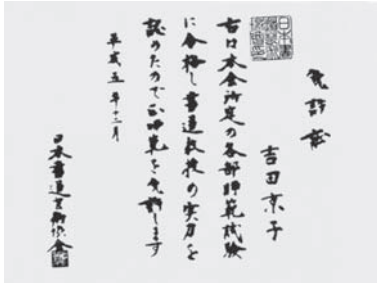 免許証
吉田京子
右は本会所定の各部師範試験
に合格し書道教授の実力を
認めたので正師範を免許します
平成五年十二月
日本書道芸術協会